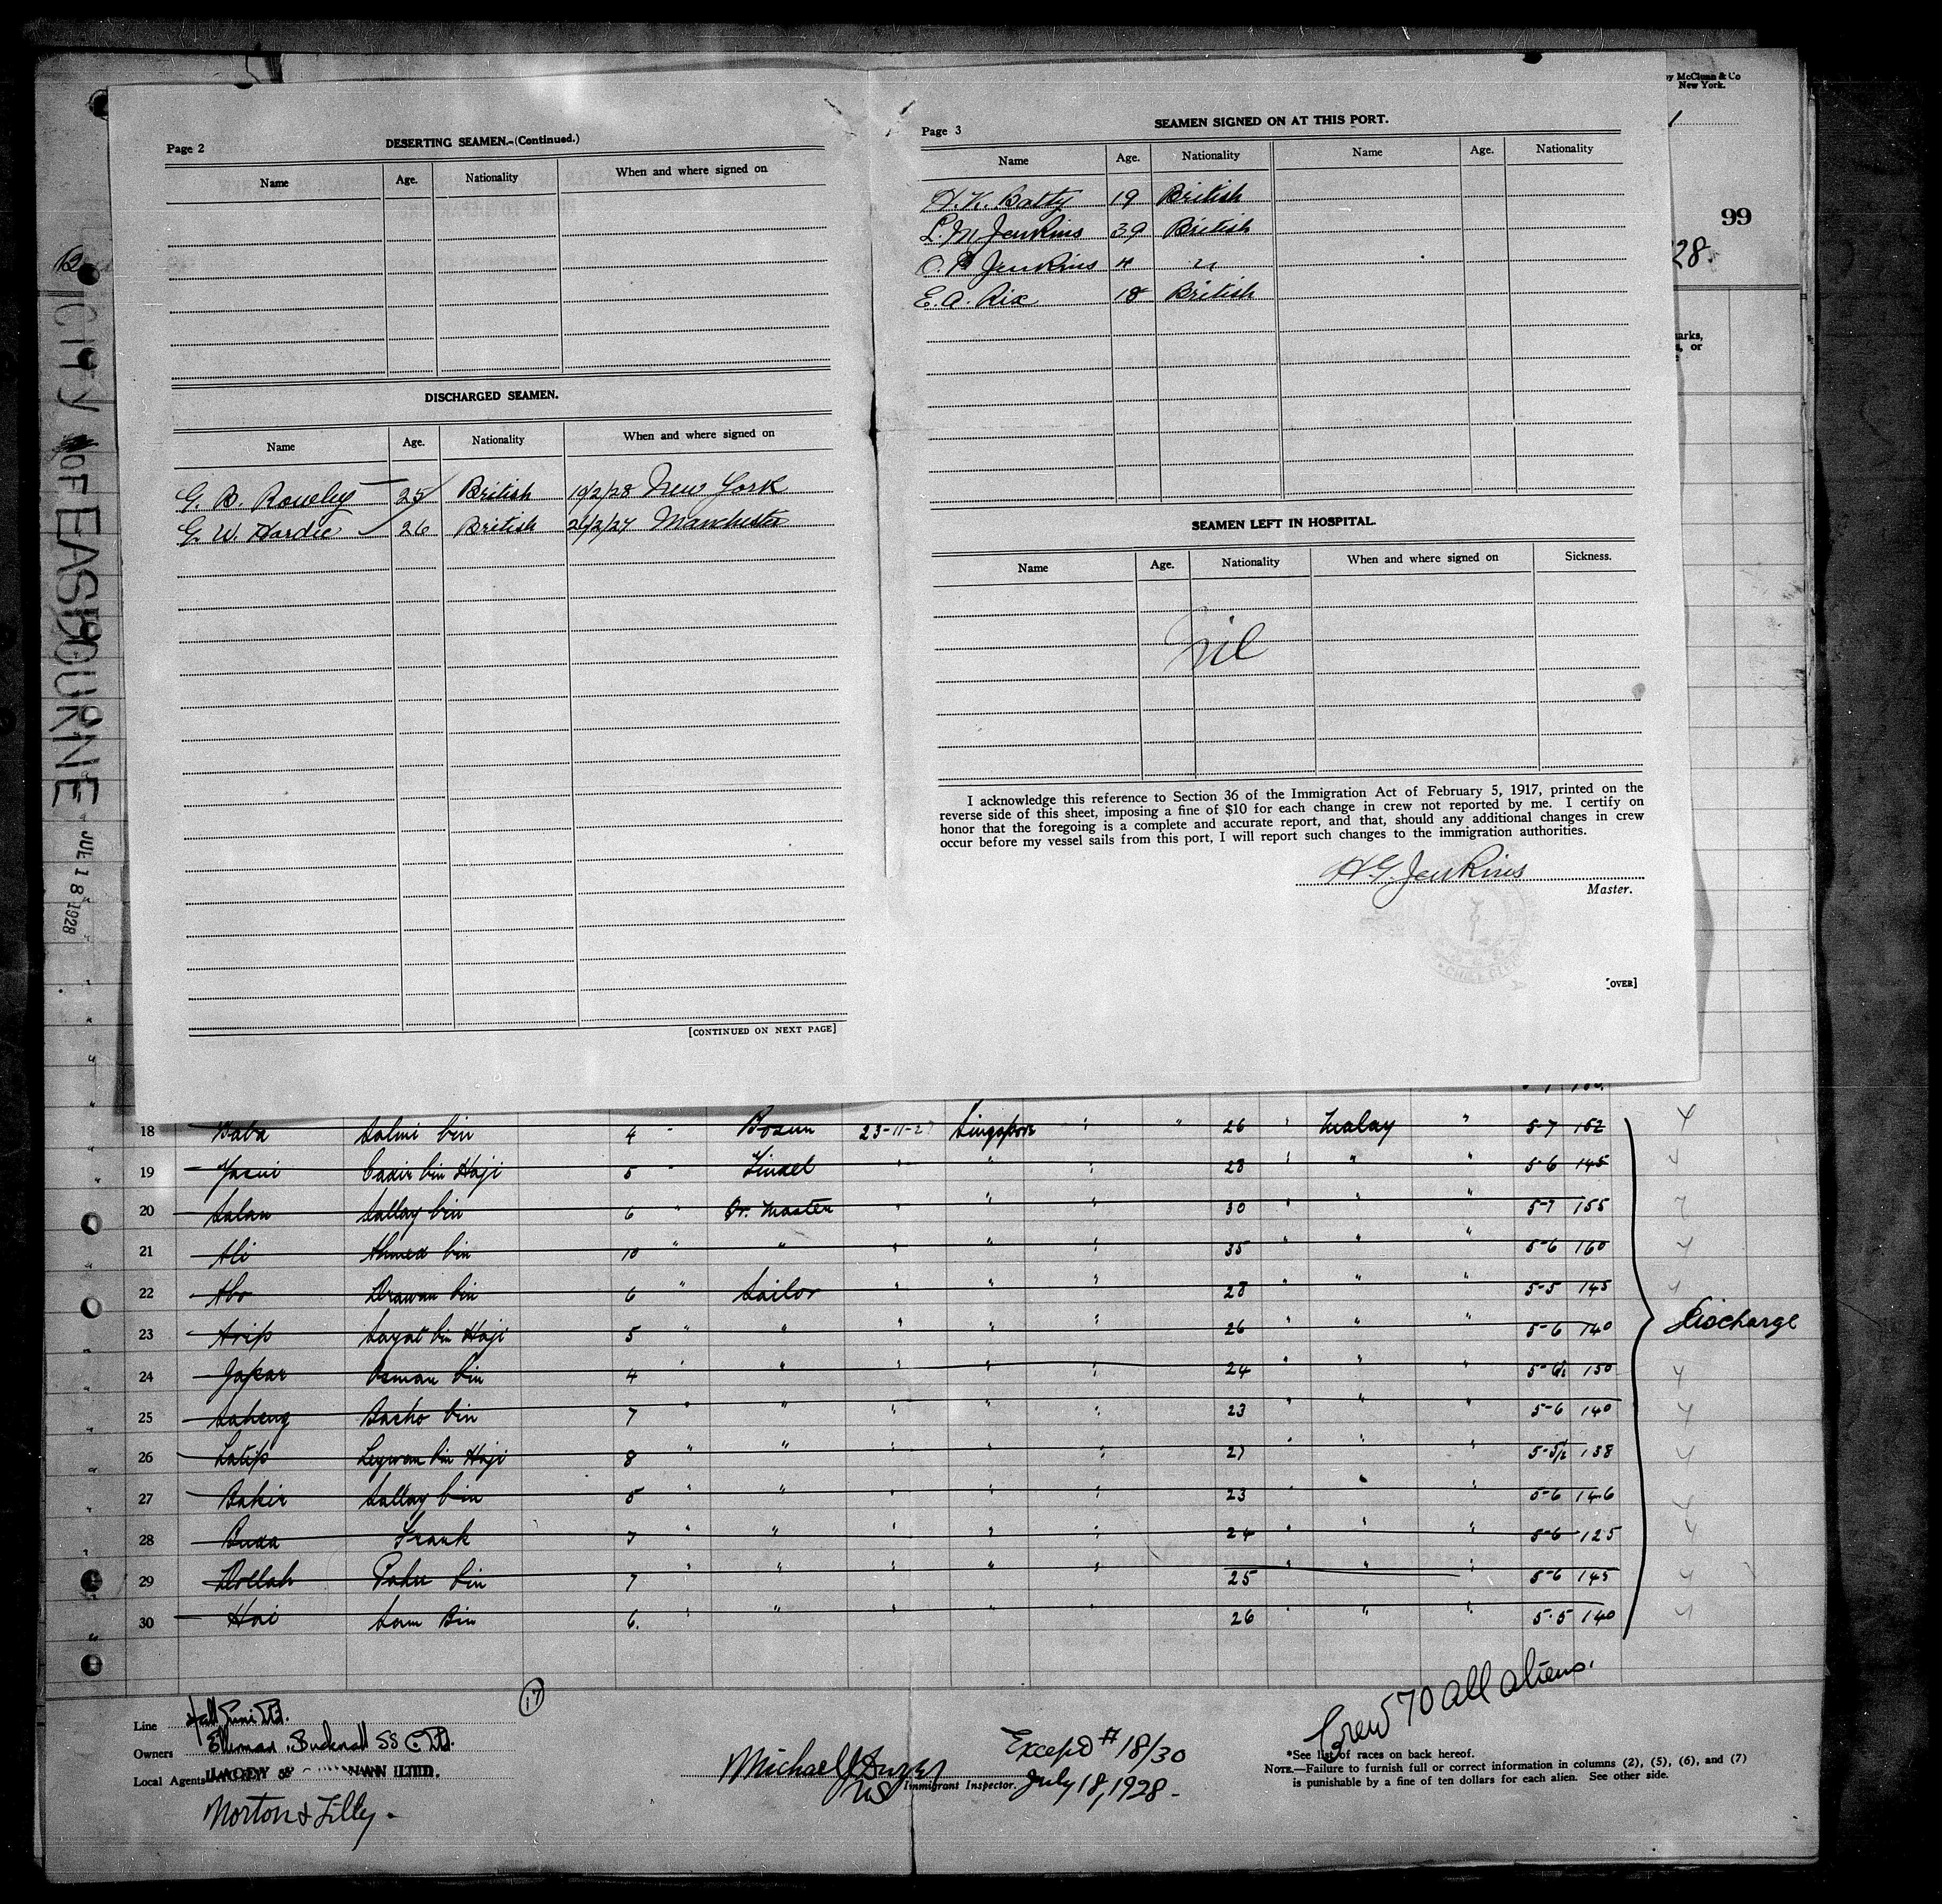 by McClunn & Co
New York.
99
28.
arks,
s, or
CITY OF EASTBOURNE
JUL 18 1928
Page 2
DESERTING SEAMEN.-(Continued.)
Name Age. Nationality When and where signed on
DISCHARGED SEAMEN.
Name Age. Nationality When and where signed on
G. B. Rowley 25 British 10/2/28 New York
G. W. Hardie 26 British 26/2/27 Manchester
[CONTINUED ON NEXT PAGE]
Page 3
SEAMEN SIGNED ON AT THIS PORT.
Name Age. Nationality Name Age. Nationality
H. K. Batty 19 British
L. M. Jenkins 39 British
O. P. Jenkins 4 "
E. A. Rix 18 British
SEAMEN LEFT IN HOSPITAL.
Name Age. Nationality When and where signed on Sickness.
Nil
I acknowledge this reference to Section 36 of the Immigration Act of February 5, 1917, printed on the
reverse side of this sheet, imposing a fine of $10 for each change in crew not reported by me. I certify on
honor that the foregoing is a complete and accurate report, and that, should any additional changes in crew
occur before my vessel sails from this port, I will report such changes to the immigration authorities.
H. G. Jenkins
Master.
[OVER]
18 Baba Salmi bin 4 " Bosun 23-11-27 Singapore " " 26 " Malay " 5-7 162
19 Yasni Cadir bin Haji 5 " Tindel " " " 28 " " " 5-6 145
20 Salan Sallay bin 6 " Qr. Master " " " 30 " " " 5-7 155
21 Ali Ahmed bin 10 " " " " " 35 " " " 5-6 160
22 Abo Drawan bin 6 " Sailor " " " 28 " " " 5-5 145
23 Arip Sayat bin Haji 5 " " " " " 26 " " " 5-6 140
24 Japar Osman bin 4 " " " " " 24 " " " 5-6½ 150
25 Saheng Basho bin 7 " " " " " 23 " " " 5-6 140
26 Latip Leywan bin Haji 8 " " " " " 27 " " " 5-5½ 138
27 Bakir Sallay bin 5 " " " " " 23 " " " 5-6 146
28 Buda Frank 7 " " " " " 24 " " " 5-6 125
29 Dollah Pahu bin 7 " " " " " 25 " " " 5-6 145
30 Hai Sam Bin 6. " " " " " 26 " " " 5-5 140
Discharge
17
Crew 70 all aliens.
Line Hall Line Ltd.
Owners Ellerman Bucknall SS Co Ltd.
Local Agents
Norton & Lilly.
Michael J Dwyer
US Immigrant Inspector.
Except # 18/30
July 18, 1928.
*See list of races on back hereof.
NOTE.—Failure to furnish full or correct information in columns (2), (5), (6), and (7)
is punishable by a fine of ten dollars for each alien. See other side.